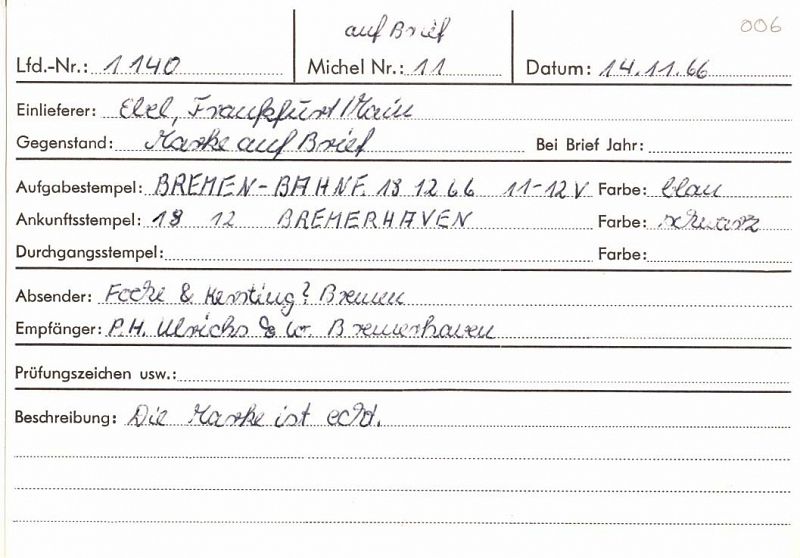 006
auf Brief
Lfd.-Nr.: 1140 Michel Nr.: 11 Datum: 14.11.66
Einlieferer: Ebel, Frankfurt/Main
Gegenstand: Marke auf Brief Bei Brief Jahr:
Aufgabestempel: BREMEN-BAHNF. 18 12 66 11-12 V Farbe: blau
Ankunftsstempel: 18 12 BREMERHAVEN Farbe: schwarz
Durchgangsstempel: Farbe:
Absender: & Bremen
Empfänger: P.H. Ulrichs & Bremerhaven
Prüfungszeichen usw.:
Beschreibung: Die Marke ist echt.